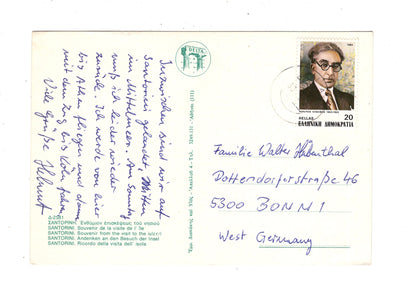 Inzwischen sind wir auf
Santorin gelandet. Mitten
im Mittelmeer. Am Sonntag
muß ich leider wieder
zurück. Ich werde von hier
bis Athen fliegen und dann
mit dem Zug bis Köln fahren.
Viele Grüße Helmut
ΣΑΝΤΟΡΙΝΗ. Ενθύμιον επισκέψεως του νησιού
SANTORINI. Souvenir de la visite de l' île
SANTORINI. Souvenir from the visit to the island
SANTORINI. Andenken an den Besuch der Insel
SANTORINI. Ricordo della visita dell' isola
DELTA
1983
20
ΕΛΛΗΝΙΚΗ ΔΗΜΟΚΡΑΤΙΑ
HELLAS
Familie Walter Habenthal
Dottendorferstraße 46
5300 BONN 1
West Germany